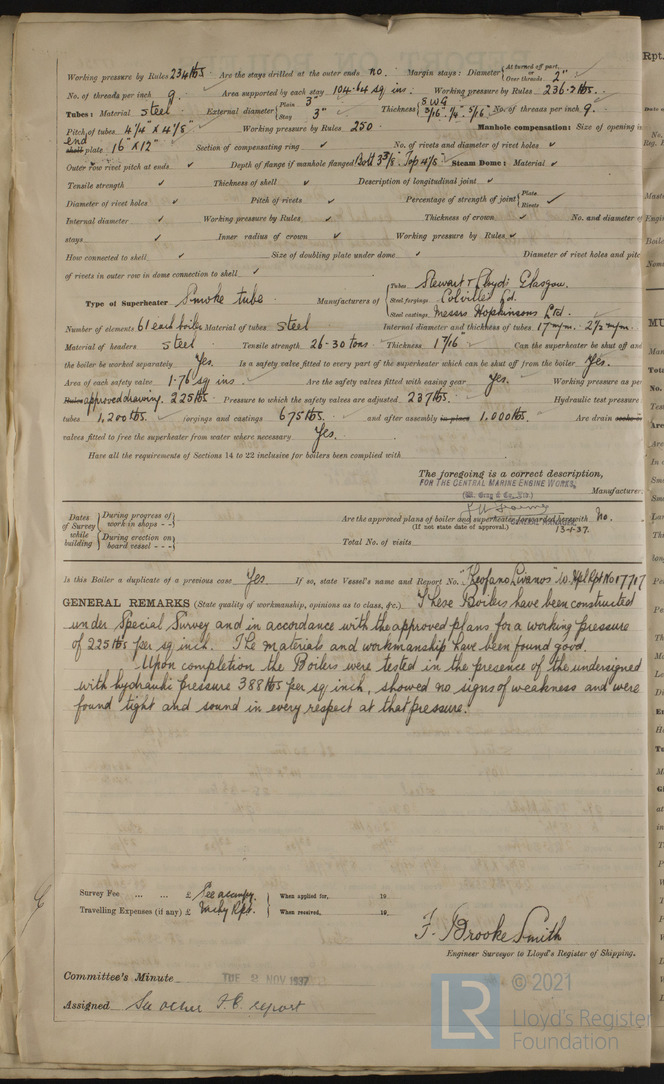 Working pressure by Rules 234 lbs Are the stays drilled at the outer ends no. Margin stays: Diameter { At turned off part, or Over threads 2"
No. of threads per inch 9. Area supported by each stay 104.64 sq ins. Working pressure by Rules 236.2 lbs.
Tubes: Material steel External diameter { Plain 3" Stay 3" Thickness { SWG 3/16" 1/4" 5/16" No. of threads per inch 9.
Pitch of tubes 4 1/4" x 4 1/8" Working pressure by Rules 250 Manhole compensation: Size of opening in
end shell plate 16" x 12" Section of compensating ring ✓ No. of rivets and diameter of rivet holes ✓
Outer row rivet pitch at ends ✓ Depth of flange if manhole flanged Bott 3 3/8" Top 4 1/8 Steam Dome: Material ✓
Tensile strength ✓ Thickness of shell ✓ Description of longitudinal joint ✓
Diameter of rivet holes ✓ Pitch of rivets ✓ Percentage of strength of joint { Plate Rivets ✓
Internal diameter ✓ Working pressure by Rules ✓ Thickness of crown ✓ No. and diameter of
stays ✓ Inner radius of crown ✓ Working pressure by Rules ✓
How connected to shell ✓ Size of doubling plate under dome ✓ Diameter of rivet holes and pitch
of rivets in outer row in dome connection to shell ✓
Type of Superheater Smoke tube Manufacturers of { Tubes Stewart & Lloyds Glasgow.
Steel forgings Colvilles Ltd.
Steel castings Messrs Hopkinsons Ltd.
Number of elements 61 each boiler Material of tubes steel Internal diameter and thickness of tubes 17 m/m. 2 1/2 m/m.
Material of headers steel Tensile strength 26-30 tons Thickness 1 7/16" Can the superheater be shut off and
the boiler be worked separately Yes. Is a safety valve fitted to every part of the superheater which can be shut off from the boiler Yes.
Area of each safety valve 1.76 sq ins. Are the safety valves fitted with easing gear Yes. Working pressure as per
Rules approved drawing. 225 lbs. Pressure to which the safety valves are adjusted 237 lbs. Hydraulic test pressure
tubes 1,200 lbs. forgings and castings 675 lbs. and after assembly in place 1,000 lbs. Are drain cocks or
valves fitted to free the superheater from water where necessary Yes.
Have all the requirements of Sections 14 to 22 inclusive for boilers been complied with
The foregoing is a correct description,
FOR THE CENTRAL MARINE ENGINE WORKS,
(Wm. Gray & Co. Ltd.) Manufacturer.
Dates of Survey while building { During progress of work in shops - - } Are the approved plans of boiler and superheater forwarded herewith No.
(If not state date of approval.) 13-1-37.
{ During erection on board vessel - - - } Total No. of visits
Is this Boiler a duplicate of a previous case Yes If so, state Vessel's name and Report No. "Keofano Livanos" W. Hpl Rpt No 17717
GENERAL REMARKS (State quality of workmanship, opinions as to class, &c.) These Boilers have been constructed
under Special Survey and in accordance with the approved plans for a working pressure
of 225 lbs per sq inch. The materials and workmanship have been found good.
Upon completion the Boilers were tested in the presence of the undersigned
with hydraulic pressure 388 lbs per sq inch, showed no signs of weakness and were
found tight and sound in every respect at that pressure.
Survey Fee ... ... £ See accompy. When applied for, 19
Travelling Expenses (if any) £ Mchy Rpt. When received, 19
F. Brooke Smith
Engineer Surveyor to Lloyd's Register of Shipping.
Committee's Minute TUE 2 NOV 1937
Assigned See other F.E. report
© 2021
LR
Lloyd's Register
Foundation
Rpt.